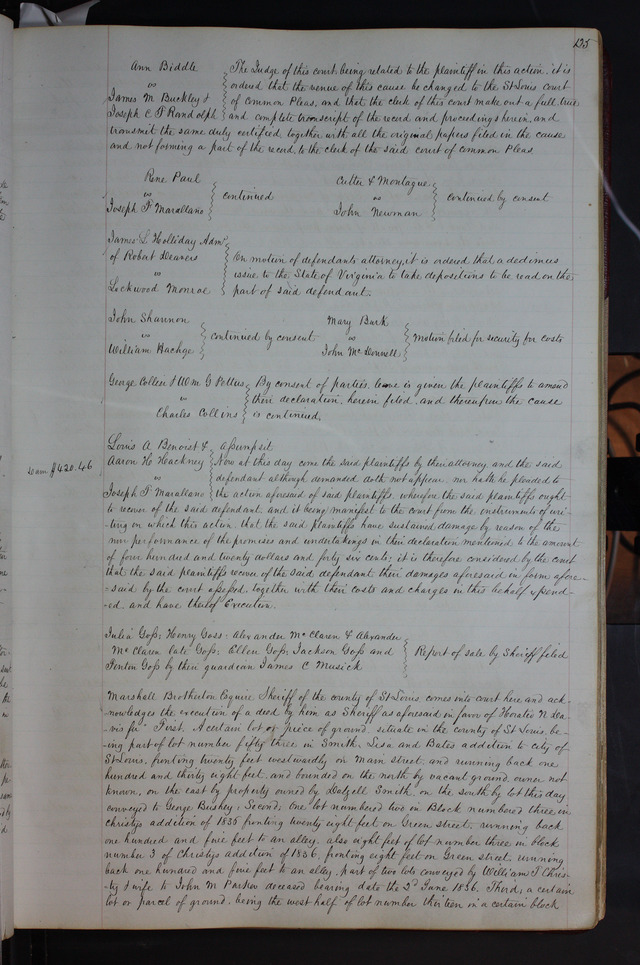 135
Ann Biddle
vs
James M Buckley &
Joseph C. F Randolph
The Judge of this court being related to the plaintiff in this action, it is
ordered that the venue of this cause be changed to the St Louis court
of Common Pleas, and that the clerk of this court make out a full, true
and complete transcript of the record and proceedings herein, and
transmit the same duly certified together with all the original papers filed in the cause
and not forming a part of the record, to the clerk of the said court of Common Pleas
Rene Paul
vs
Joseph F Marallano
continued
Cutter & Montague
vs
John Newman
continued by consent
James L. Holliday Admr
of Robert Deavers
vs
Lockwood Monroe
On motion of defendants attorney, it is ordered that a dedimus
issue to the State of Virginia to take depositions to be read on the
part of said defendant.
John Shannon
vs
William Hachge
continued by consent
Mary Burk
vs
John Mc Donnell
Motion filed for security for costs
George Collier & Wm G Pettus
vs
Charles Collins
By consent of parties, leave is given the plaintiffs to amend
their declaration, herein filed, and thereupon the cause
is continued.
Louis A Benoist &
Aaron H. Hackney
vs
Joseph F. Marallano
Assumpsit
$420.46
Now at this day come the said plaintiffs by their attorney and the said
defendant although demanded doth not appear, nor hath he pleaded to
the action aforesaid of said plaintiffs, wherefore the said plaintiffs ought
to recover of the said defendant, and it being manifest to the court from the instruments of wri-
ting on which this action, that the said plaintiffs have sustained damage by reason of the
non performance of the promises and undertakings in their declaration mentioned to the amount
of four hundred and twenty dollars and forty six cents; it is therefore considered by the court
that the said plaintiffs recover of the said defendant their damages aforesaid in form afore-
=said by the court assessed, together with their costs and charges in this behalf expend-
-ed, and have thereof Execution.
Julia Goss: Henry Goss: Alexander Mc Claren & Alexander
Mc Claren late Goss; Ellen Goss; Jackson Goss and
Fenton Goss by their guardian James C Musick
Report of sale by Sheriff filed
Marshall Brotherton Esquire Sheriff of the county of St Louis comes into court here and ack-
nowledges the execution of a deed by him as Sheriff as aforesaid in favor of Horatio N. Da-
-vis for First, A certain lot or piece of ground, situate in the county of St Louis, be-
ing part of lot number fifty three in Smith, Lisa and Bates addition to city of
St Louis, fronting twenty feet westwardly on Main street, and running back one
hundred and thirty eight feet, and bounded on the north by vacant ground, owner not
known, on the east by property owned by Dalzell Smith, on the south by lot this day
conveyed to George Buskey; Second; One lot numbered two in Block numbered three in
Christys addition of 1835 fronting twenty eight feet on Green street, running back
one hundred and five feet to an alley, also eight feet of lot number three in block
number 3 of Christys addition of 1836, fronting eight feet on Green street, running
back one hundred and five feet to an alley, part of two lots conveyed by William T Chris-
-ty & wife to John M Parker deceased bearing date the 3d June 1836. Third; a certain
lot or parcel of ground, being the west half of lot number thirteen in a certain block